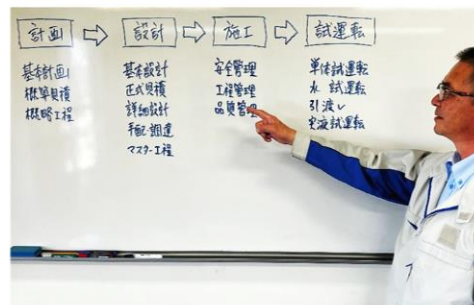 計画 ⇨ 設計 ⇨ 施工 ⇨ 試運転
基本計画
概算見積
概略工程
基本設計
正式見積
詳細設計
手配・調達
マスター工程
安全管理
工程管理
品質管理
単体試運転
水 試運転
引渡し
実液試運転